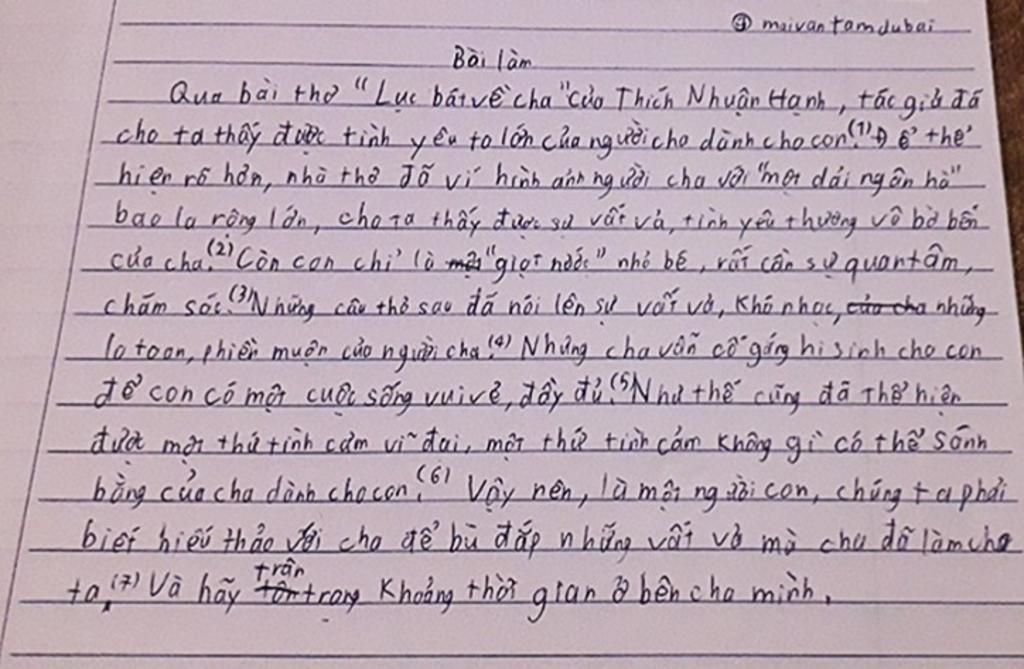 maivantamdubai
Bài làm
Qua bài thơ "Lục bát về cha" của Thích Nhuận Hạnh, tác giả đã
cho ta thấy được tình yêu to lớn của người cha dành cho con.(1) Để thể
hiện rõ hơn, nhà thơ đã ví hình ảnh người cha với "một dải ngân hà"
bao la rộng lớn, cho ta thấy được sự vất vả, tình yêu thương vô bờ bến
của cha.(2) Còn con chỉ là một "giọt nước" nhỏ bé, rất cần sự quan tâm,
chăm sóc.(3) Những câu thơ sau đã nói lên sự vất vả, khó nhọc, của cha những
lo toan, phiền muộn của người cha.(4) Nhưng cha vẫn cố gắng hi sinh cho con
để con có một cuộc sống vui vẻ, đầy đủ.(5) Như thế cũng đã thể hiện
được một thứ tình cảm vĩ đại, một thứ tình cảm không gì có thể sánh
bằng của cha dành cho con.(6) Vậy nên, là một người con, chúng ta phải
biết hiếu thảo với cha để bù đắp những vất vả mà cha đã làm cho
ta.(7) Và hãy tôn trân trọng khoảng thời gian ở bên cha mình.